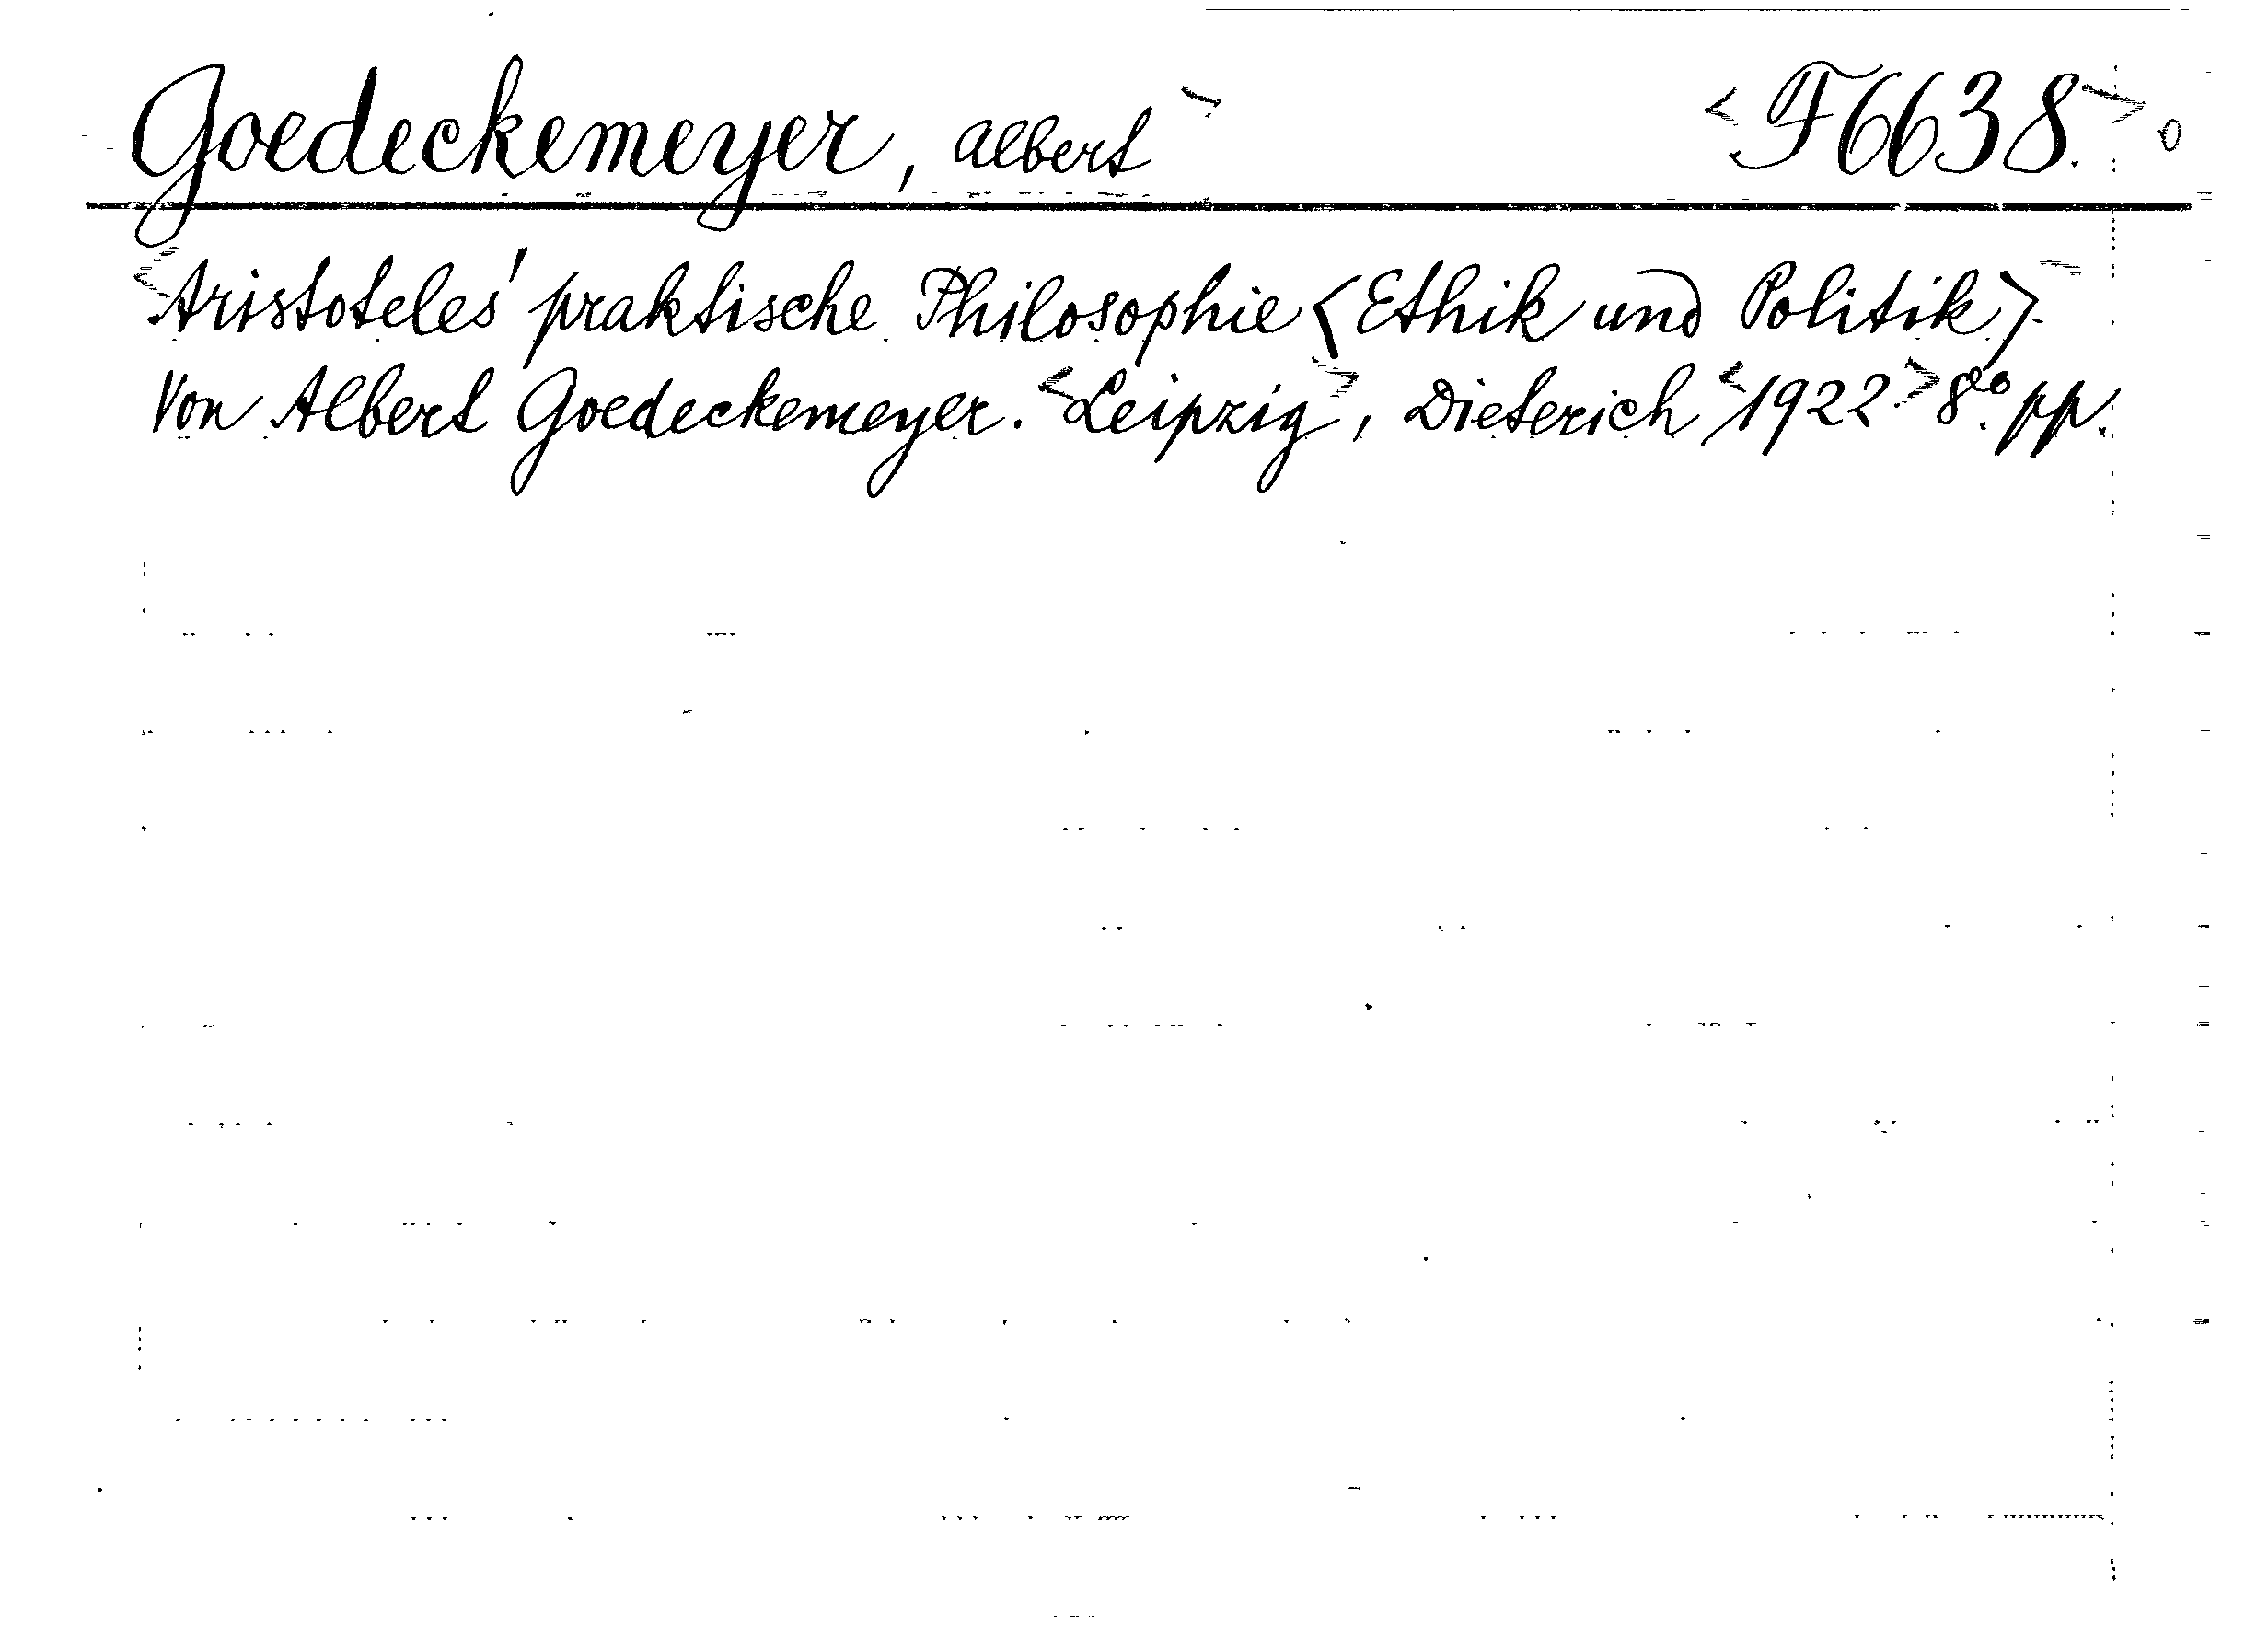 Goedeckemeyer, Albert> <F6638.> 0
<Aristoteles' praktische Philosophie <Ethik und Politik>.>
Von Albert Goedeckemeyer. <Leipzig>, Dieterich <1922.> 8°. pp.